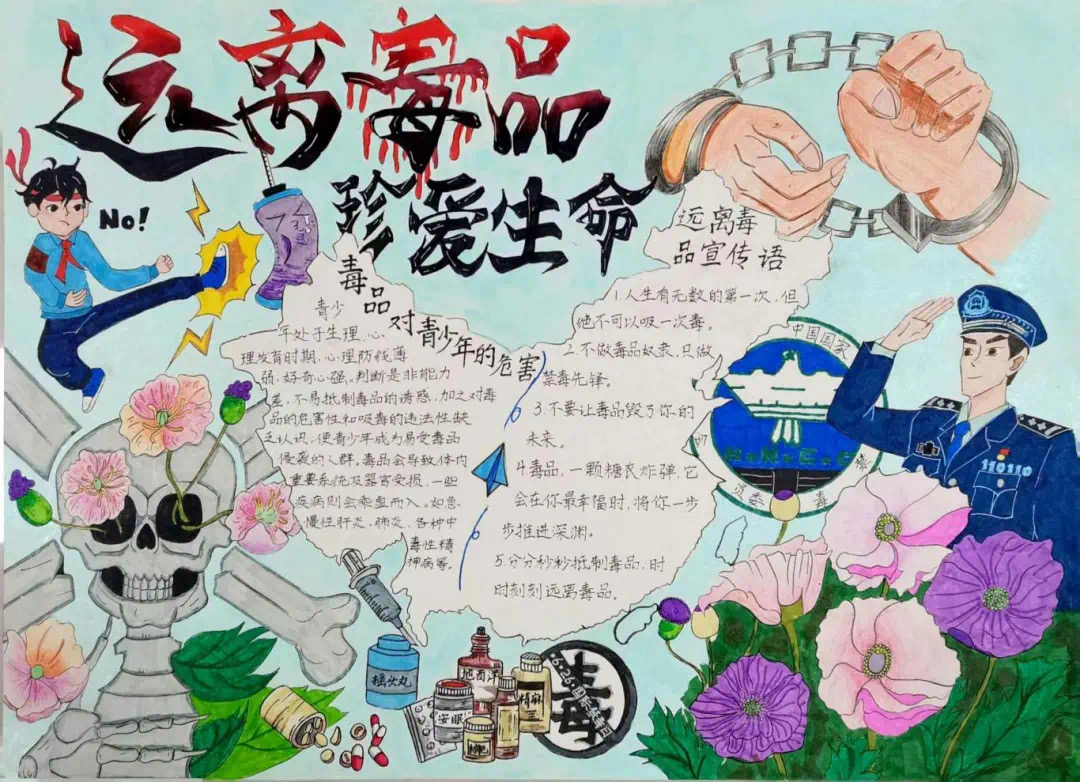 远离毒品
珍爱生命
No!
毒品对青少年的危害
青少
年处于生理、心
理发育时期,心理防线薄
弱,好奇心强。判断是非能力
差,不易抵制毒品的诱惑,加之对毒
品的危害性和吸毒的违法性缺
乏认识,使青少年成为易受毒品
侵袭的人群。毒品会导致体内
重要系统及器官受损,一些
疾病则会乘虚而入。如急
、慢性肝炎、肺炎、各种中
毒性精
神病等。
远离毒
品宣传语
1.人生有无数的第一次,但
他不可以吸一次毒。
2.不做毒品奴隶,只做
禁毒先锋。
3.不要让毒品毁了你的
未来。
4.毒品,一颗糖衣炸弹,它
会在你最幸福时,将你一步
步推进深渊。
5.分分秒秒抵制毒品,时
时刻刻远离毒品。
中国国家
禁
毒
委
110110
摇头丸
地西泮
安眠
毒